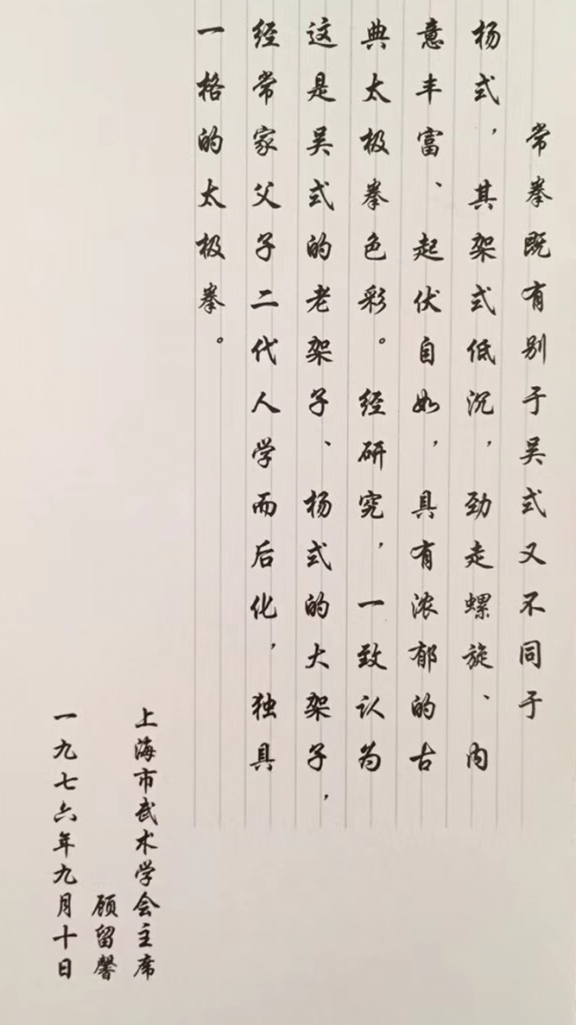 常拳既有别于吴式又不同于
杨式，其架式低沉，劲走螺旋、内
意丰富、起伏自如，具有浓郁的古
典太极拳色彩。经研究，一致认为
这是吴式的老架子、杨式的大架子，
经常家父子二代人学而后化，独具
一格的太极拳。
上海市武术学会主席
顾留馨
一九七六年九月十日